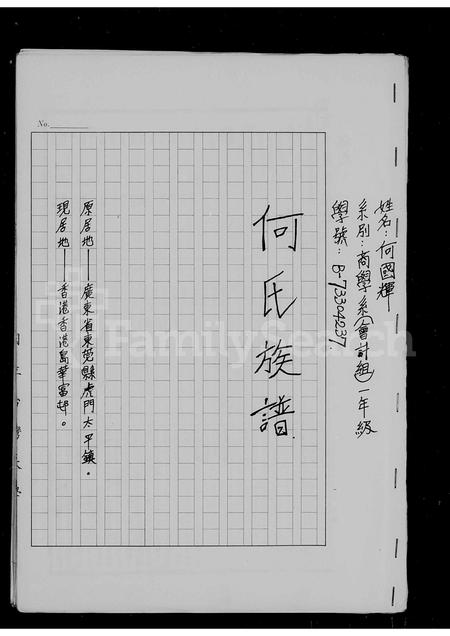 姓名：何國輝
系別：商學系(會計組)一年級
學號：B-73304237
何氏族譜.
原居地——廣東省東莞縣虎門太平鎮。
現居地——香港香港島華富邨。
No.
FamilySearch